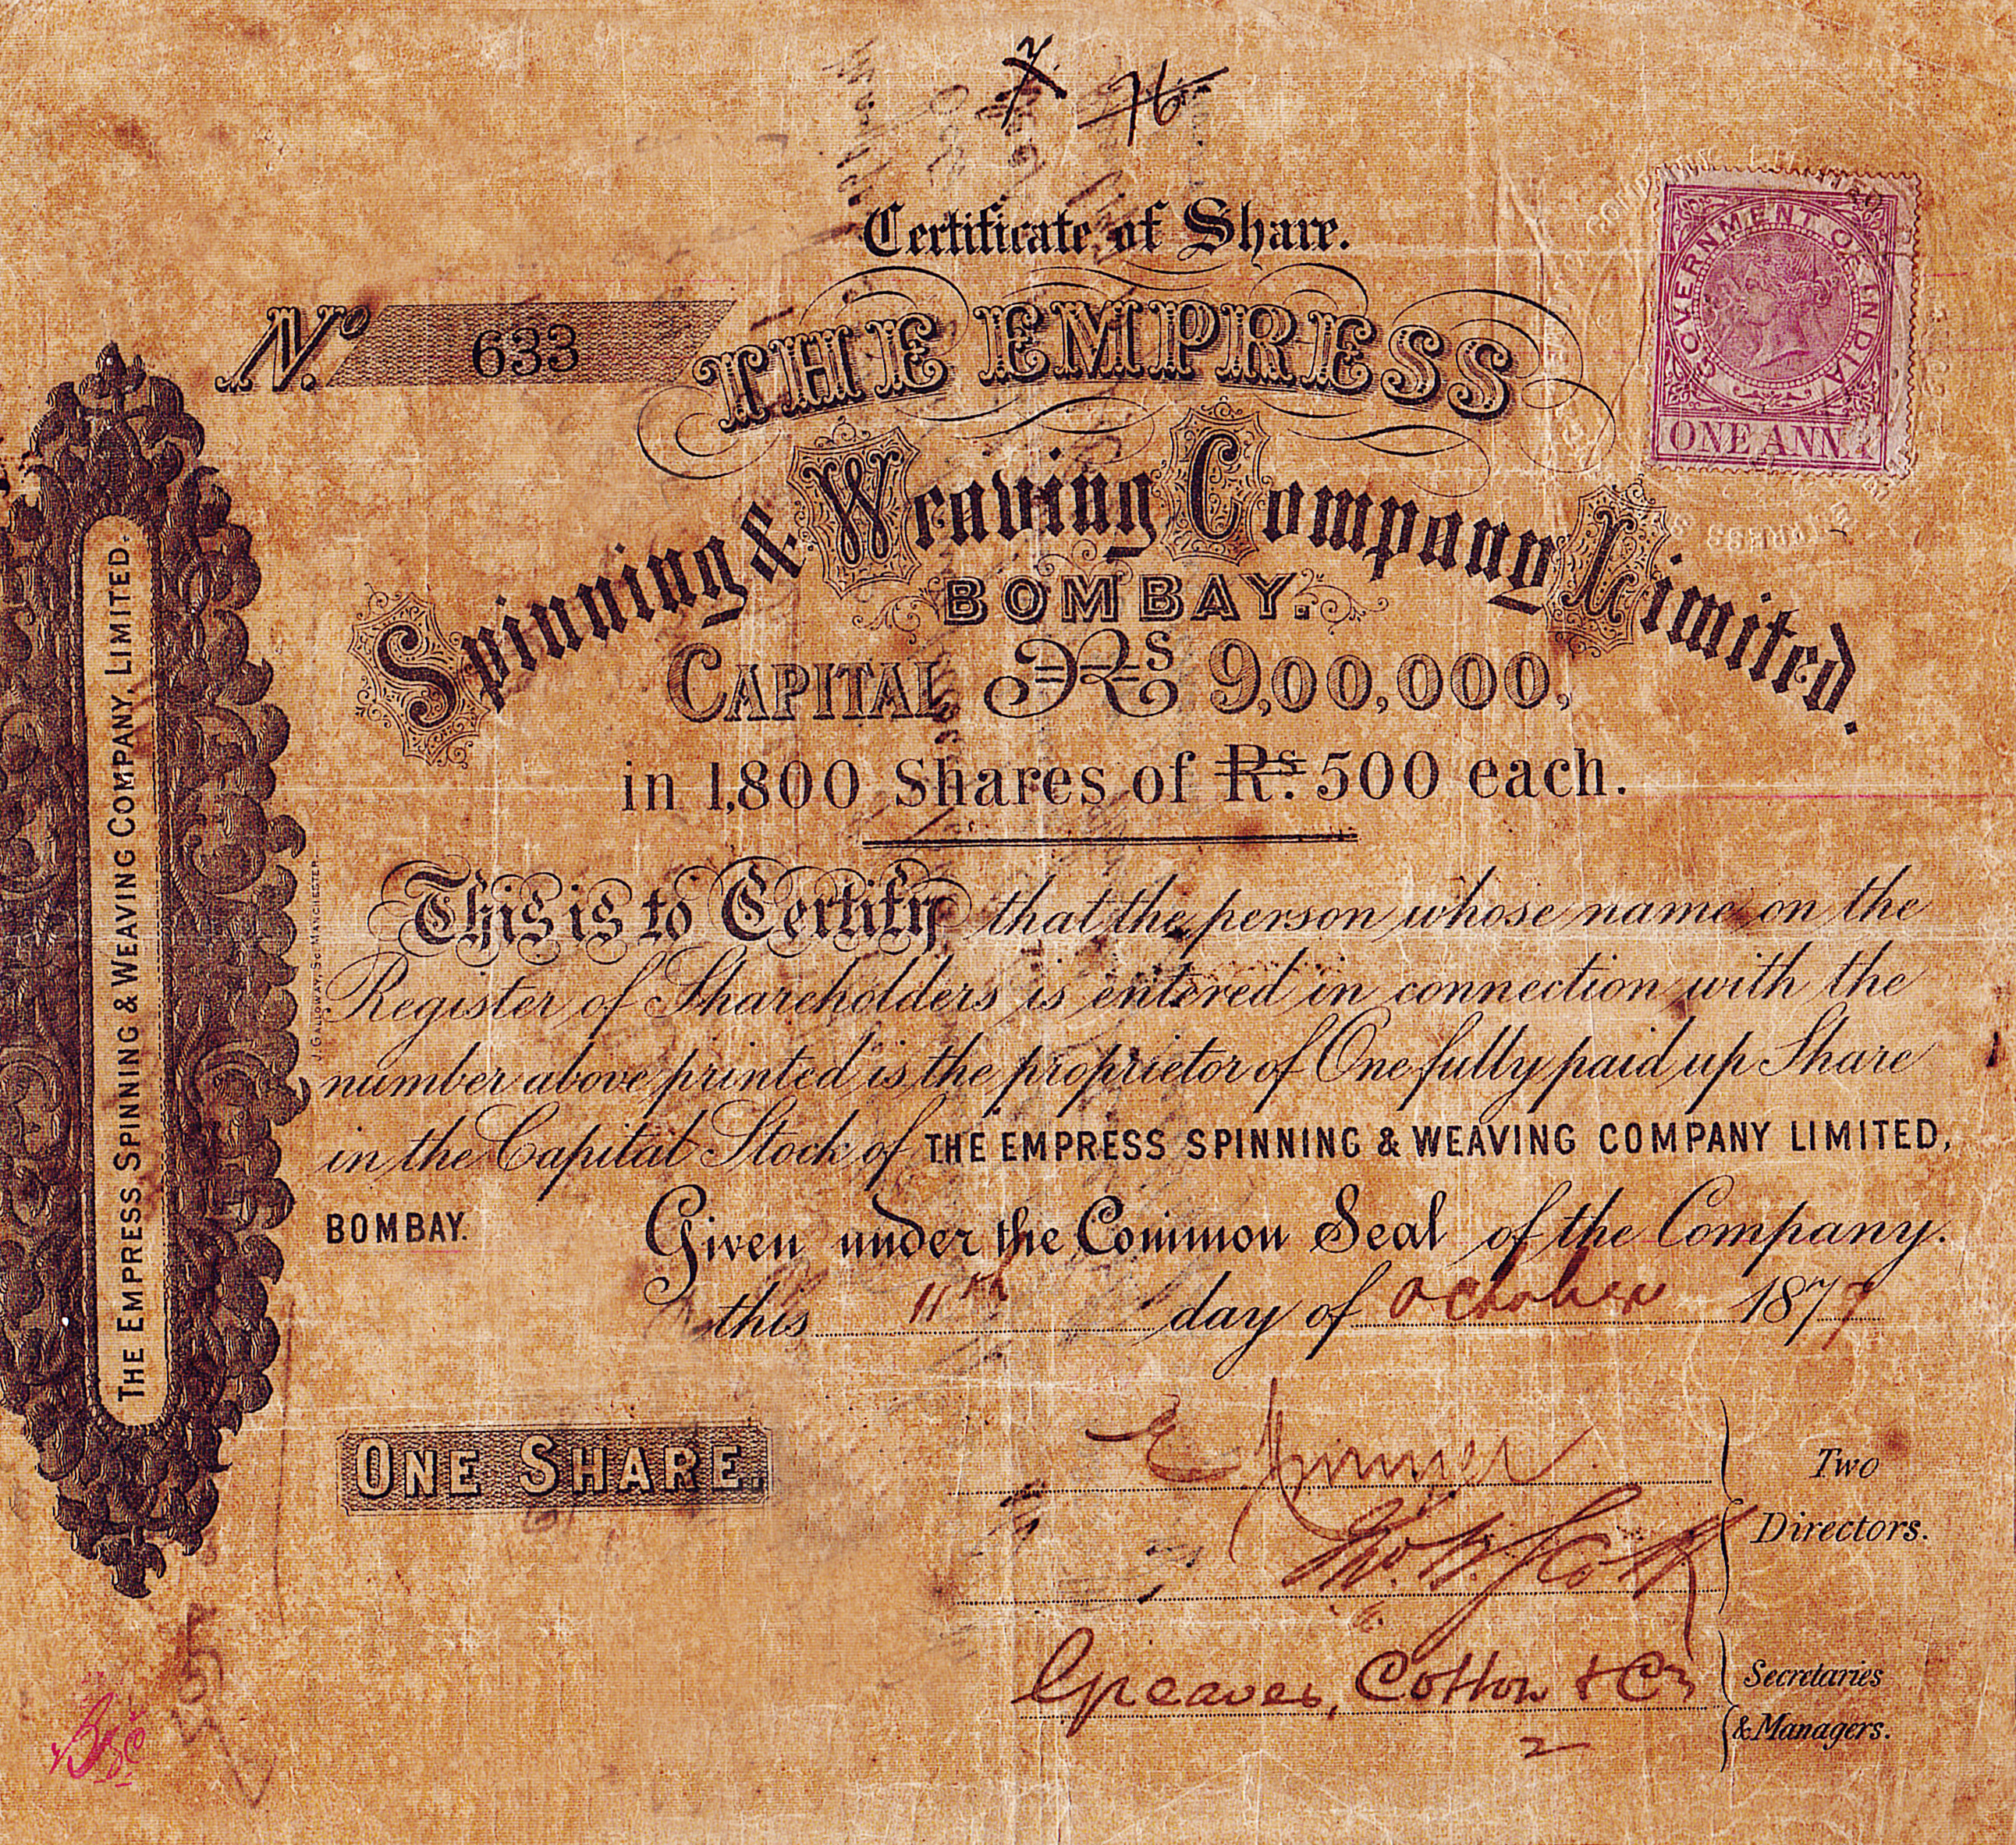 76
Certificate of Share.
No. 633
THE EMPRESS
Spinning & Weaving Company Limited.
BOMBAY.
CAPITAL Rs 9,00,000,
in 1,800 Shares of Rs. 500 each.
This is to Certify that the person whose name on the
Register of Shareholders is entered in connection with the
number above printed is the proprietor of One fully paid up Share
in the Capital Stock of THE EMPRESS SPINNING & WEAVING COMPANY LIMITED,
BOMBAY. Given under the Common Seal of the Company.
this 11th day of October 1879
ONE SHARE.
Two
Directors.
Greaves, Cotton & Co
Secretaries
& Managers.
THE EMPRESS SPINNING & WEAVING COMPANY, LIMITED.
J. GALLOWAY, Sc. MANCHESTER
GOVERNMENT OF INDIA
ONE ANNA